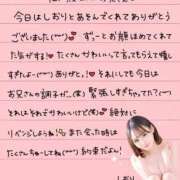 今日はしおりとあそんでくれてありがとう
ございました(˶ᵔᵕᵔ˶)💕 ずーっとお顔ほめてくれて
た気がする！たくさんかわいいって言ってもらえて嬉し
すぎたよ~ ありがと。それにしても今日は
お兄さんの調子が…(笑) 緊張しすぎちゃった？？
それはそれでかわいいけど(笑)💕 絶対に
リベンジしようね！また会った時は
たくさんちゅーしてね 約束だよん！
しおり